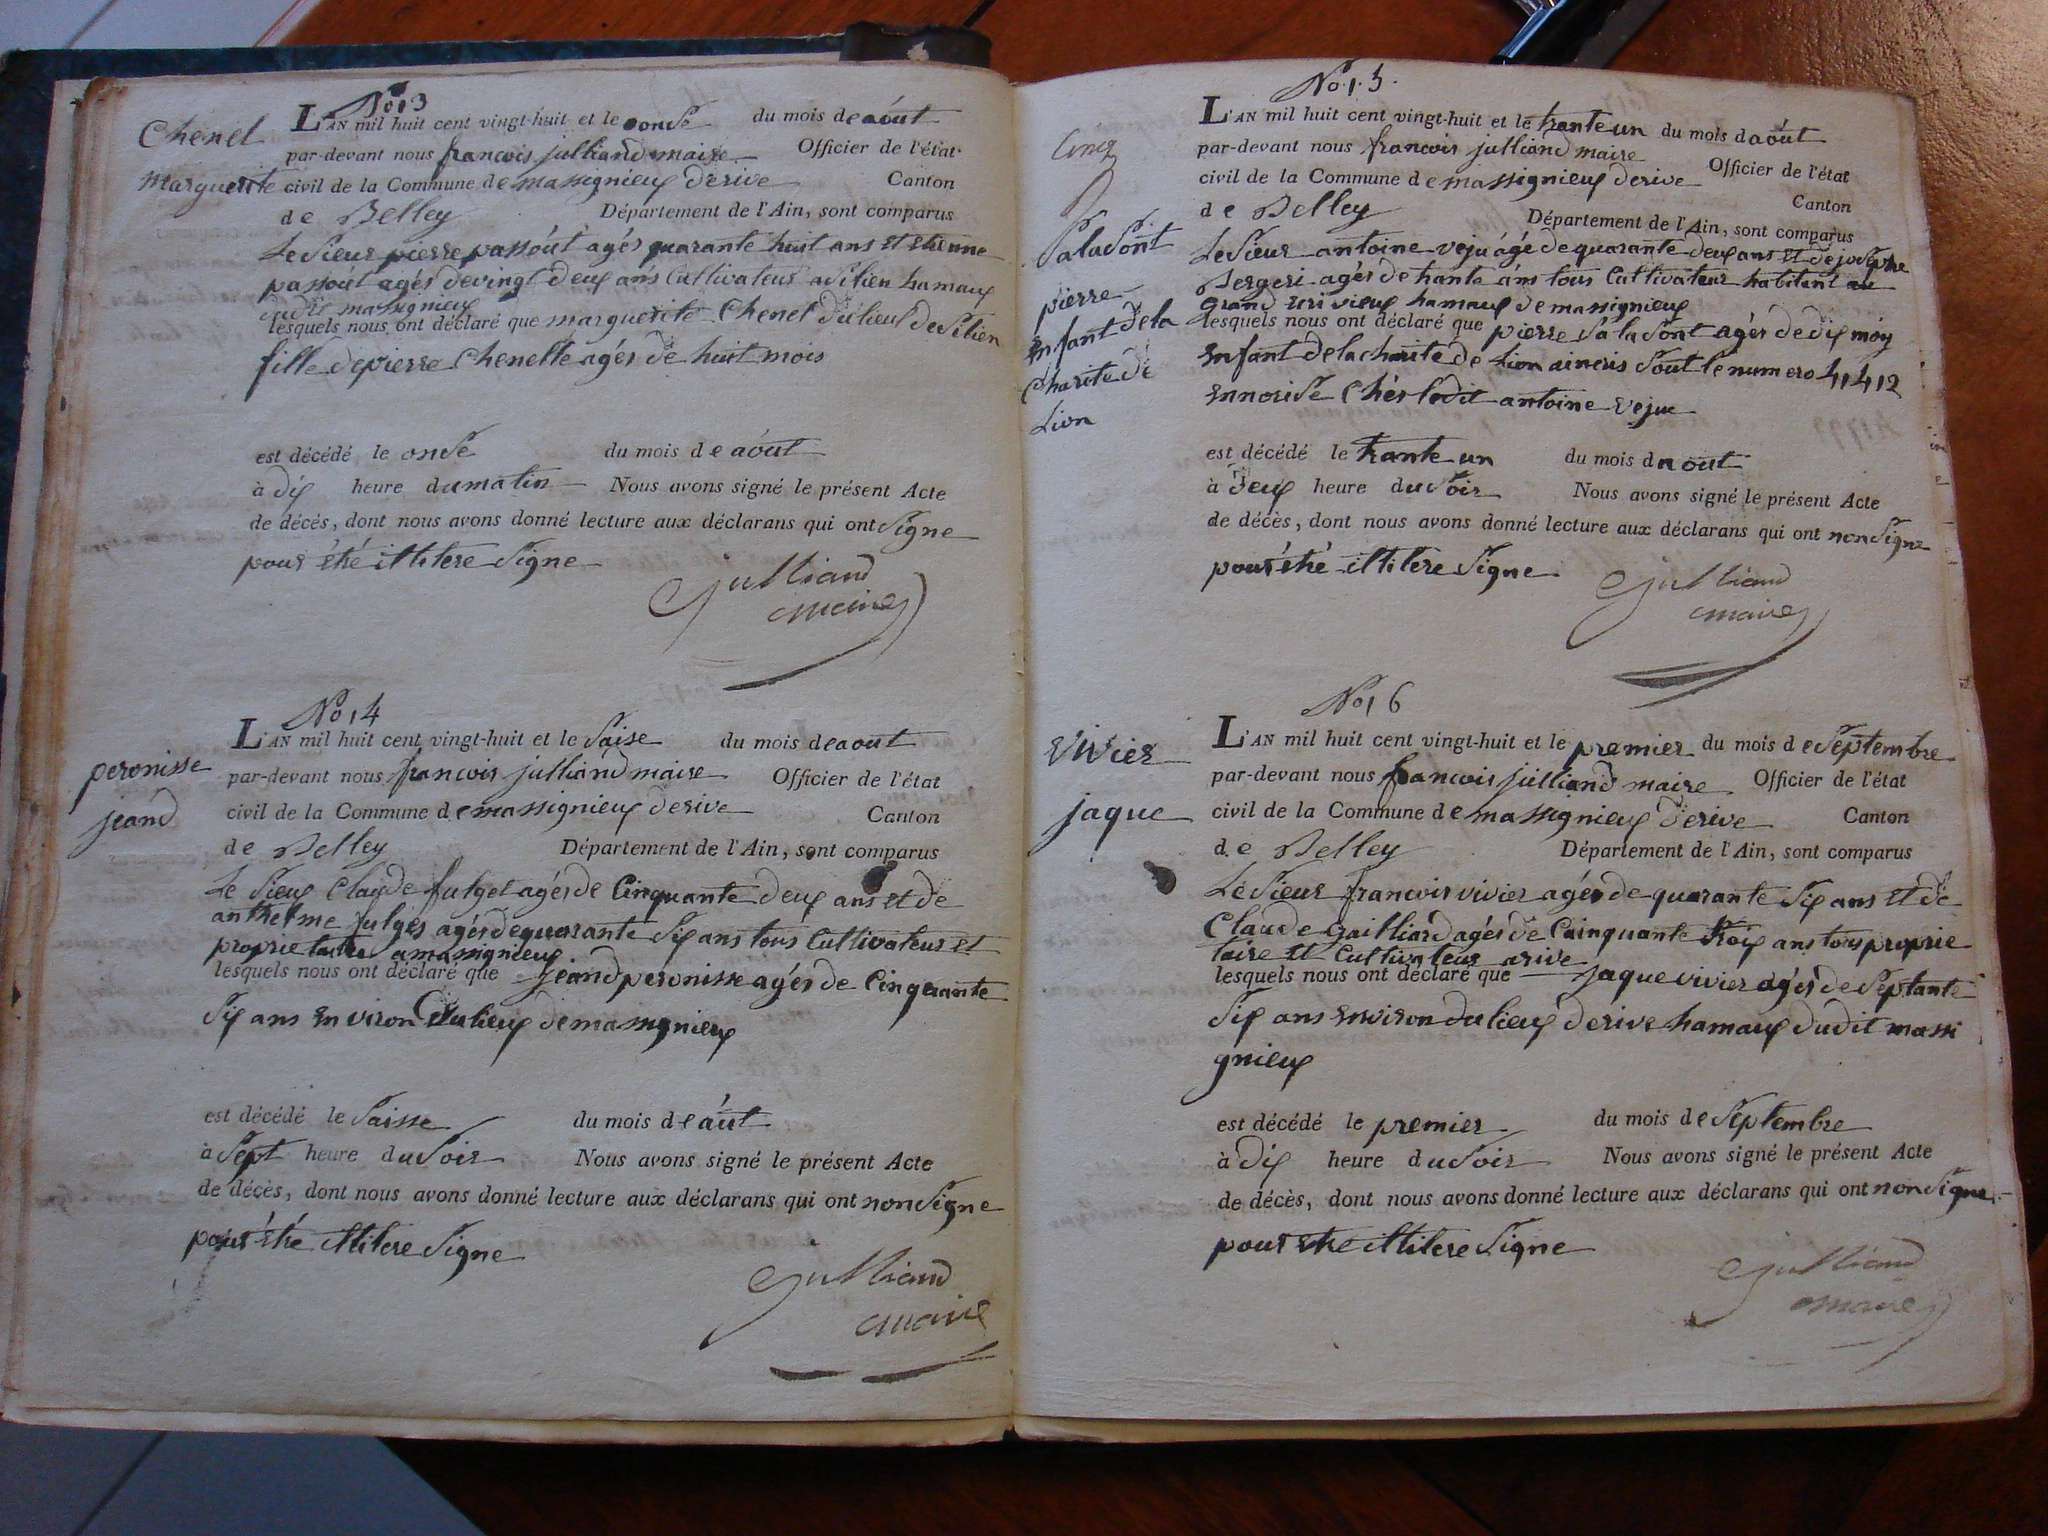 No 13
Chenel
marguerite
L'AN mil huit cent vingt-huit et le onse du mois de aóut
par-devant nous francois julliand maire Officier de l'état
civil de la Commune de massignieux derive Canton
de Belley Département de l'Ain, sont comparus
Le Sieur pierre passóut agés quarante huit ans et etienne
passóut agés de vingt deux ans Cultivateur a Silien hamaux
dudit massignieux
lesquels nous ont déclaré que marguerite Chenel du lieux de Silien
fille de pierre Chenelle agés de huit mois
est décédé le onse du mois de aóut
à dix heure du matin Nous avons signé le présent Acte
de décès, dont nous avons donné lecture aux déclarans qui ont Signe
pour étré illitere Signe
julliand
maire
No 14
peronisse
jeand
L'AN mil huit cent vingt-huit et le Saise du mois de aout
par-devant nous francois julliand maire Officier de l'état
civil de la Commune de massignieux derive Canton
de Belley Département de l'Ain, sont comparus
Le Sieux Claude fulget agés de Cinquante deux ans et de
anthelme fulges agés de quarante Six ans tous Cultivateur et
proprietaire a massignieux
lesquels nous ont déclaré que jeand peronisse agés de Cinquante
Six ans en viron du lieux de massignieux
est décédé le Saisse du mois de aút
à Sept heure du Soir Nous avons signé le présent Acte
de décès, dont nous avons donné lecture aux déclarans qui ont non Signe
pour étré illitere Signe
julliand
maire
No 15
Salasont
pierre
enfant de la
Charite de
Lion
L'AN mil huit cent vingt-huit et le trante un du mois d aóut
par-devant nous francois julliand maire Officier de l'état
civil de la Commune de massignieux derive Canton
de Belley Département de l'Ain, sont comparus
Le Sieur antoine veju ágé de quarante deux ans et de josephe
Bergeri agés de trante ans tous Cultivateur habitent au
grand hamaux de massignieux
lesquels nous ont déclaré que pierre Salasont agés de dix moy
enfant de la charite de Lion Sout le numero 41412
ennorise Chés ledit antoine vejue
est décédé le trante un du mois d aout
à deux heure du Soir Nous avons signé le présent Acte
de décès, dont nous avons donné lecture aux déclarans qui ont non Signe
pour étré illitere Signe
julliand
maire
No 16
vivier
jaque
L'AN mil huit cent vingt-huit et le premier du mois de Septembre
par-devant nous francois julliand maire Officier de l'état
civil de la Commune de massignieux derive Canton
de Belley Département de l'Ain, sont comparus
Le Sieur francois vivier agés de quarante Six ans et de
Claude Gailliard agés de Cainquante troix ans tous proprie
taire et Cultivateur arive
lesquels nous ont déclaré que jaque vivier agés de Septante
Six ans environ du lieux derive hamaux dudit massi
gnieux
est décédé le premier du mois de Septembre
à dix heure du Soir Nous avons signé le présent Acte
de décès, dont nous avons donné lecture aux déclarans qui ont non Signe
pour etre illitere Signe
julliand
maire